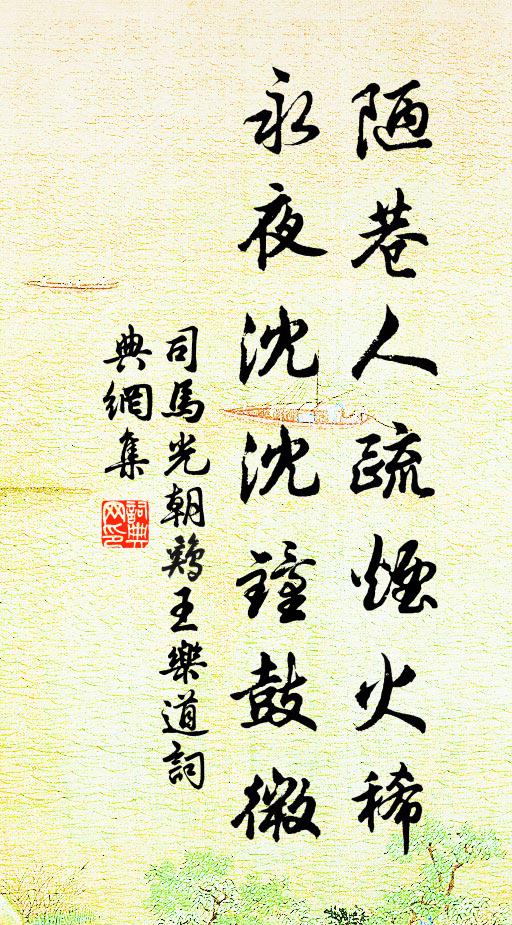 陋巷人疏煙火稀
永夜沈沈鐘鼓微
司馬光朝鷄王樂道詞
典網集
詞典网印